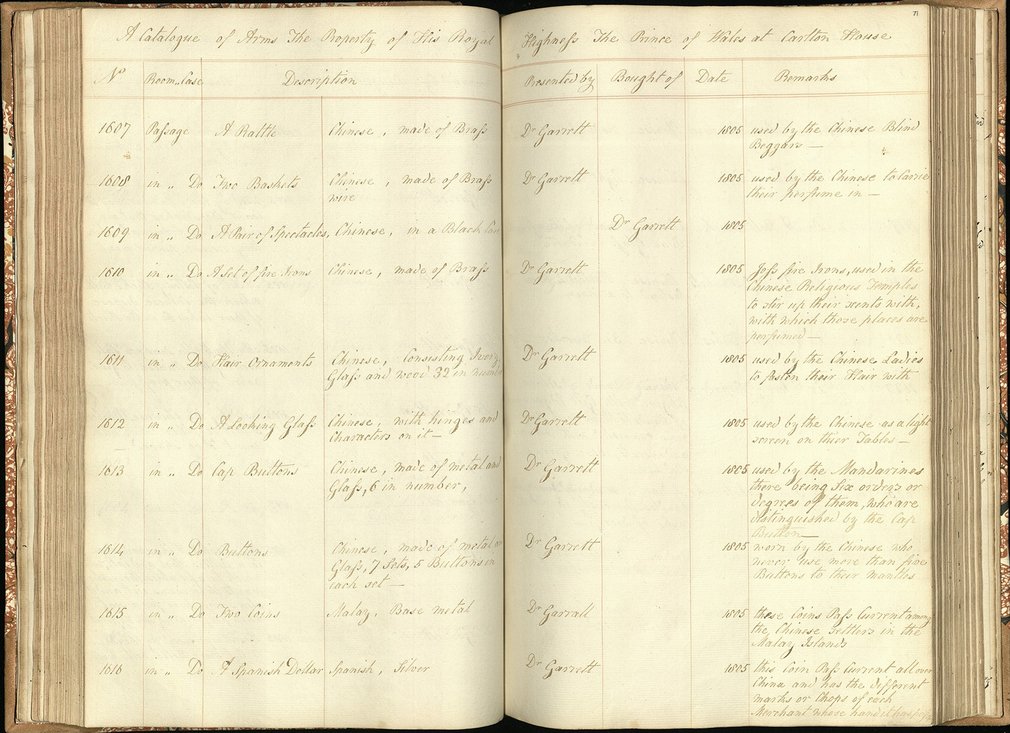 71
A Catalogue of Arms The Property of His Royal Highness The Prince of Wales at Carlton House
No Room Case Description Presented by Bought of Date Remarks
1607 Passage A Rattle Chinese, made of Brass Dr Garrett 1805 used by the Chinese Blind
Beggars —
1608 in " Do Two Baskets Chinese, made of Brass Dr Garrett 1805 used by the Chinese to Carrie
wire their perfume in —
1609 in " Do A Pair of Spectacles, Chinese, in a Black Case Dr Garrett 1805
1610 in " Do A Set of fire Irons Chinese, made of Brass Dr Garrett 1805 Joss fire Irons, used in the
Chinese Religious Temples
to stir up their scents with,
with which those places are
perfumed —
1611 in " Do Hair Ornaments Chinese, Consisting Ivory Dr Garrett 1805 used by the Chinese Ladies
Glass and wood 32 in number to fasten their Hair with
1612 in " Do A Looking Glass Chinese, with hinges and Dr Garrett 1805 used by the Chinese as a light
Characters on it — screen on their Tables —
1613 in " Do Cap Buttons Chinese, made of metal and Dr Garrett 1805 used by the Mandarines
Glass, 6 in number, there being Six orders or
degrees of them, who are
distinguished by the Cap
Button —
1614 in " Do Buttons Chinese, made of metal or Dr Garrett 1805 worn by the Chinese who
Glass, 7 Sets, 5 Buttons in never use more than five
each set — Buttons to their mantles
1615 in " Do Two Coins Malay, Base metal Dr Garratt 1805 these Coins Pass Current among
the Chinese Settlers in the
Malay Islands
1616 in " Do A Spanish Dollar Spanish, Silver Dr Garrett 1805 this Coin Pass Current all over
China and has the different
marks or Chops of each
Merchant whose hands it has